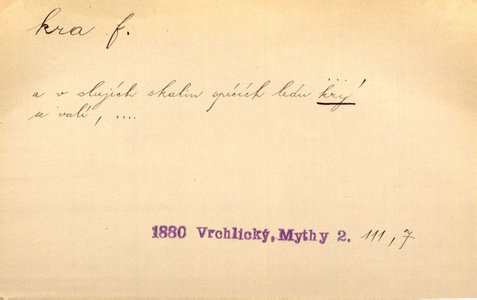 kra f.
a v slujích skalin spících ledu kry
se valí, ....
1880 Vrchlický, Mythy 2. 111, 7